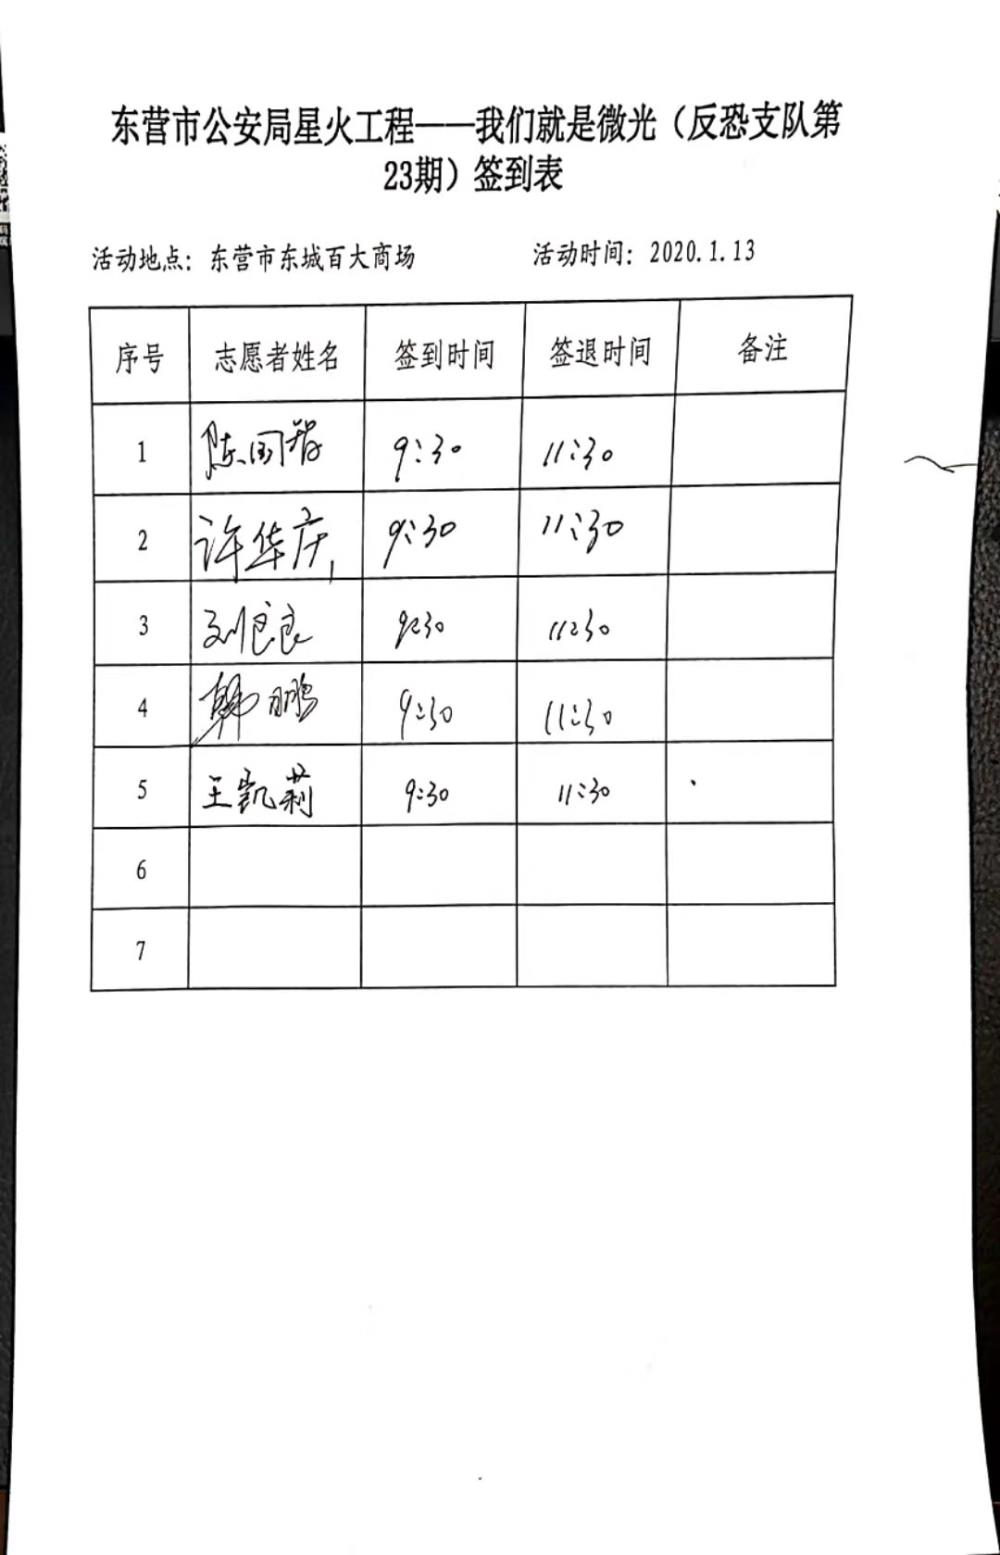 东营市公安局星火工程——我们就是微光（反恐支队第
23期）签到表
活动地点：东营市东城百大商场 活动时间：2020.1.13
序号 志愿者姓名 签到时间 签退时间 备注
1 陈国 9:30 11:30
2 许华庆 9:30 11:30
3 刘良 9:30 11:30
4 韩鹏 9:30 11:30
5 王凯莉 9:30 11:30
6
7